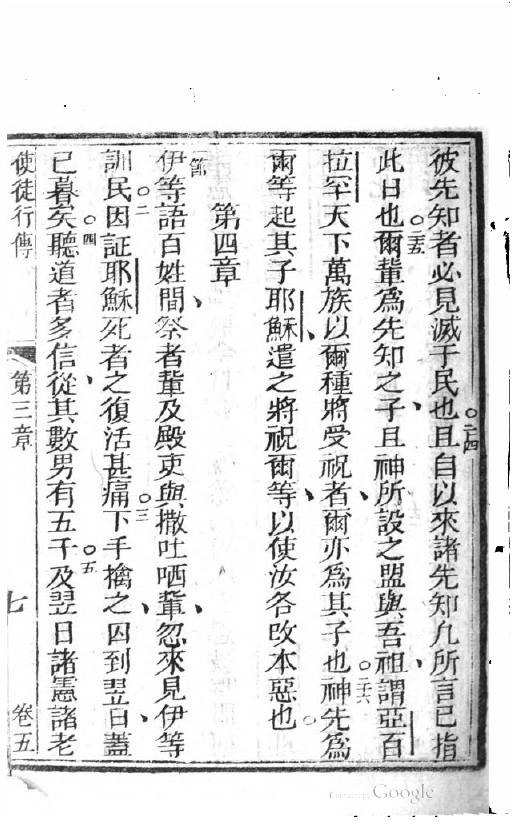 彼先知者必見滅于民也○二四且自以來諸先知凡所言已指
此日也○二五爾輩為先知之子且神所設之盟與吾祖謂亞百
拉罕天下萬族以爾種將受祝者爾亦為其子也○二六神先為
爾等起其子耶穌遣之將祝爾等以使汝各改本惡也○
第四章
一節伊等語百姓間祭者輩及殿吏與撒吐哂輩忽來見伊等
○二訓民因証耶穌死者之復活甚痛○三下手擒之囚到翌日蓋
已暮矣○四聽道者多信從其數男有五千○五及翌日諸憲諸老
使徒行傳 第三章 七 卷五
Digitized by Google